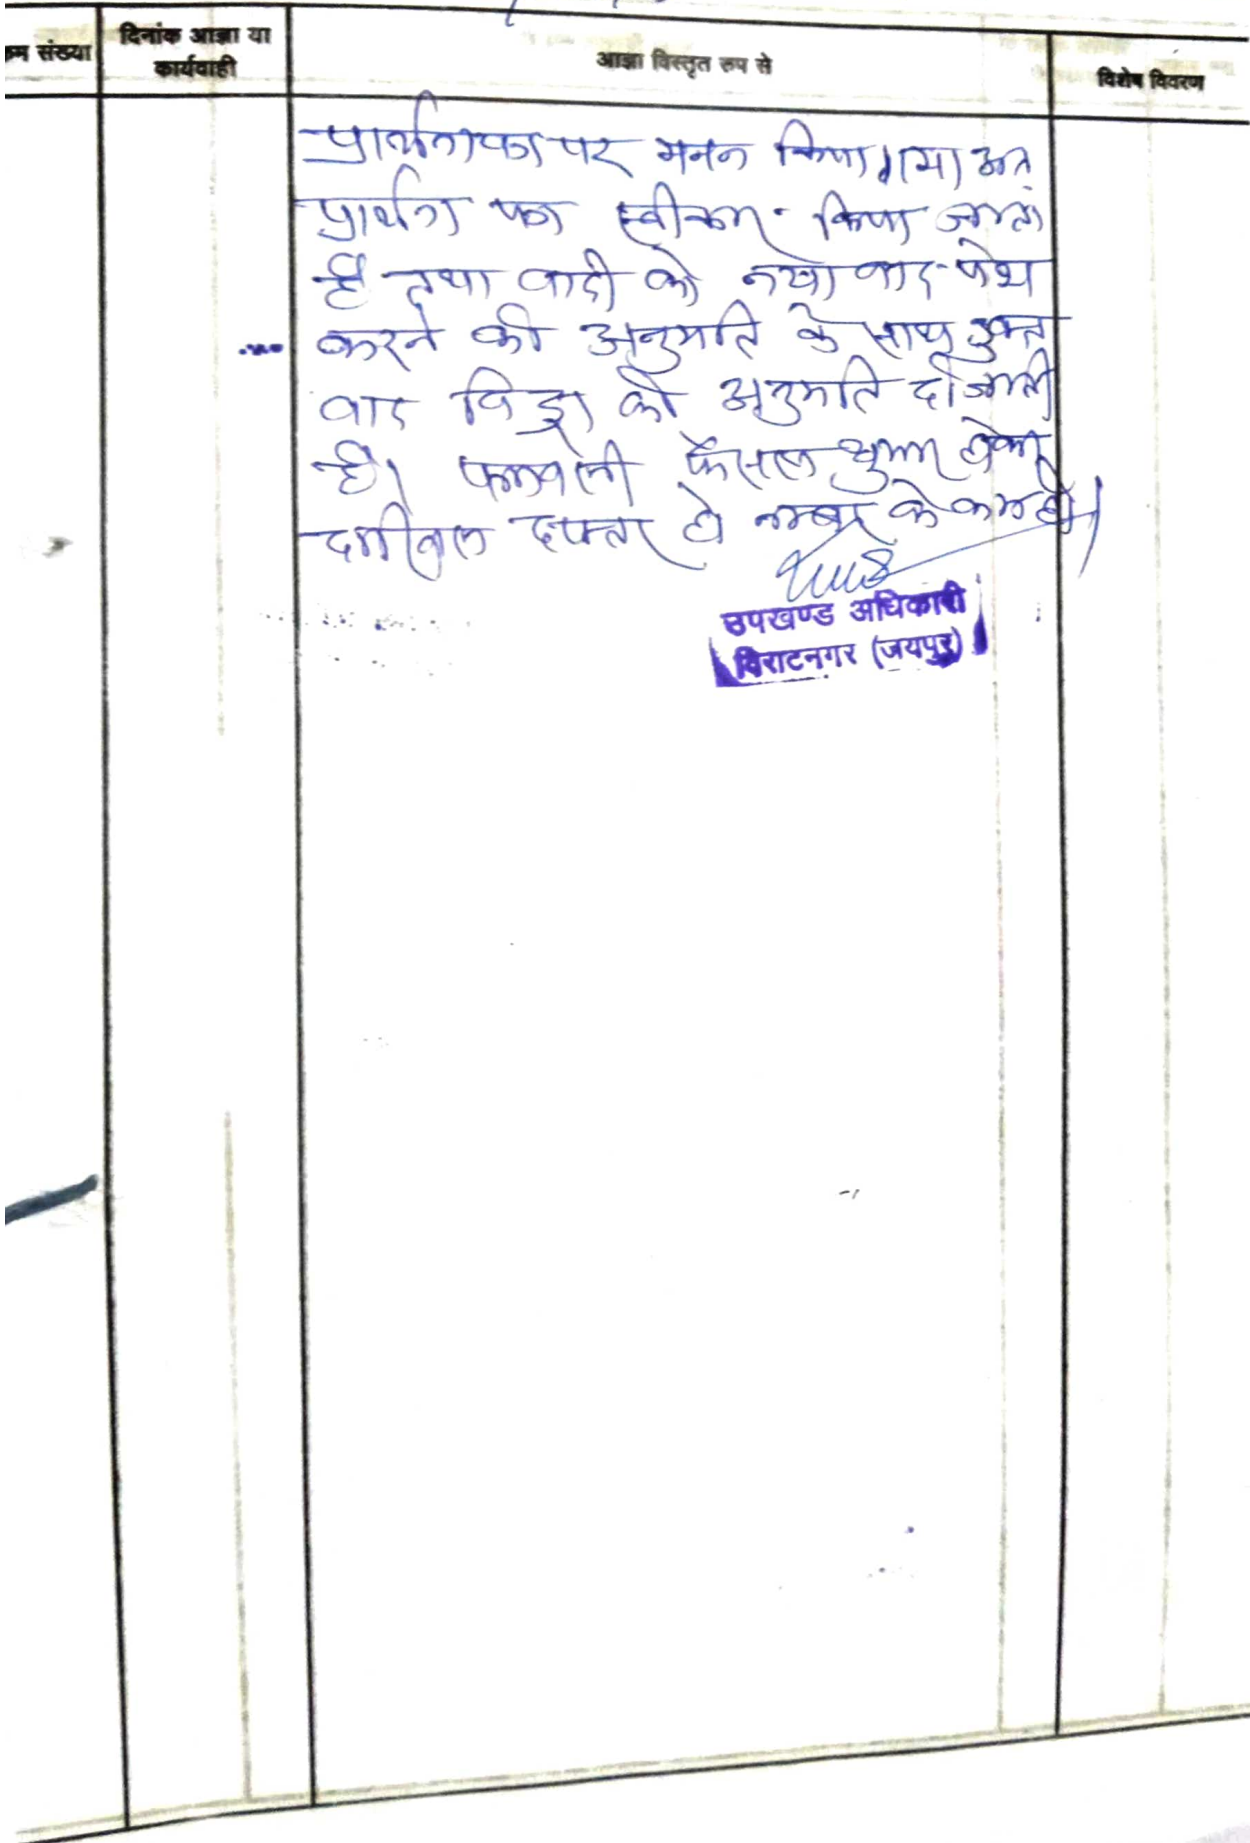 क्रम संख्या
दिनांक आज्ञा या
कार्यवाही
आज्ञा विस्तृत रूप से
विशेष विवरण
प्रार्थनापत्र पर मनन किया गया। अतः
प्रार्थना पत्र स्वीकार किया जाता
है तथा वादी को नया वाद पेश
करने की अनुमति के साथ उक्त
वाद विड्रा की अनुमति दी जाती
है। पत्रावली फैसल शुमार होकर
दाखिल दफ्तर हो नम्बर से कम हो।
उपखण्ड अधिकारी
विराटनगर (जयपुर)